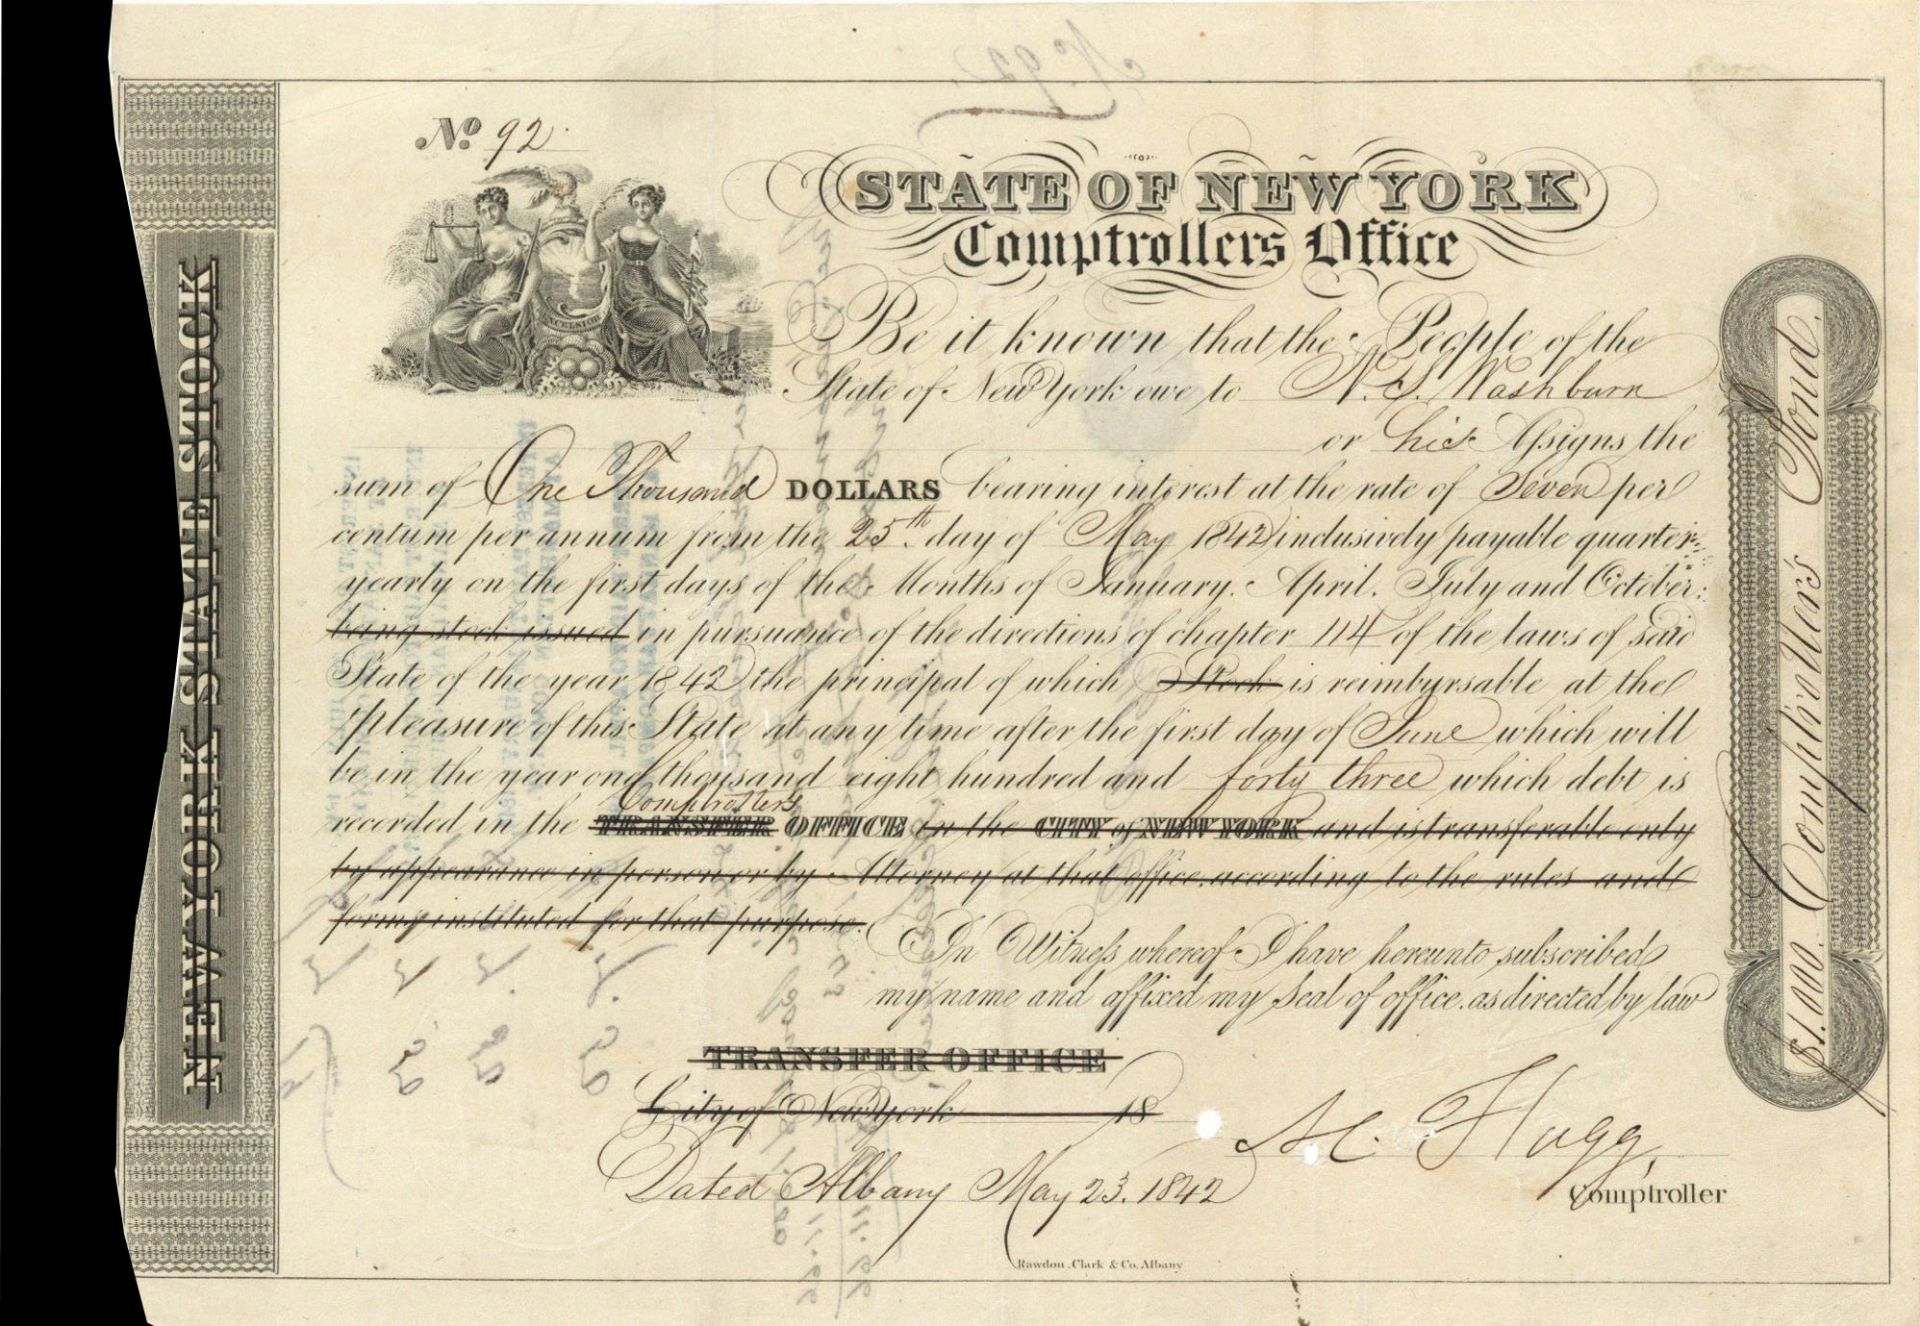 No. 92.
STATE OF NEW YORK
Comptrollers Office
EXCELSIOR
Be it known that the People of the
State of New York owe to N. S. Washburn
or his Assigns the
sum of One Thousand DOLLARS bearing interest at the rate of Seven per
centum per annum from the 25th. day of May 1842 inclusively payable quarter
yearly on the first days of the Months of January. April. July and October:
being stock issued in pursuance of the directions of chapter 114 of the laws of said
State of the year 1842 the principal of which Stock is reimbursable at the
Pleasure of this State at any time after the first day of June which will
be in the year one thousand eight hundred and forty three which debt is
Comptroller's
recorded in the TRANSFER OFFICE in the CITY of NEW YORK and is transferable only
by appearance in person or by Attorney at that office, according to the rules and
forms instituted for that purpose.
In Witness whereof I have hereunto subscribed
my name and affixed my Seal of office. as directed by law
TRANSFER OFFICE
City of New York 18
Dated Albany May 23. 1842
Comptroller
Rawdon, Clark & Co. Albany
NEW YORK STATE STOCK
$1.000. Comptroller's Bond.
No 92